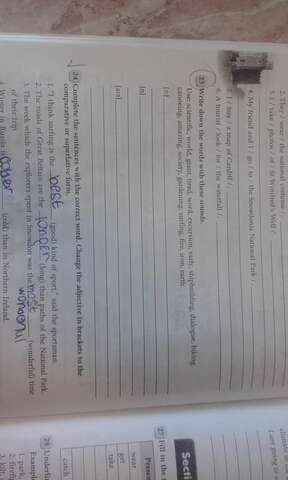 2. They / wear / the national costume / .
3. I / take / photos / of / St Winifred's Well /
4. My friend and I / go / to / the Snowdonia National Park
5. I / buy / a map of Cardiff / .
6. A tourist / look / for / the waterfall / .
23 Write down the words with these sounds.
Use: scientific, world, giant, tired, word, excursion, early, shipbuilding, dialogue, hiking,
canoeing, amazing, society, gardening, surfing, fire, iron, earth
24 Complete the sentences with the correct word. Change the adjective in brackets to the
comparative or superlative form.
1. "I think surfing is the best (good) kind of sport," said the sportsman.
2. The roads of Great Britain are the longer (long) than paths of the National Park
3. The week which the explorers spent in Snowdon was the most wonderful (wonderful) time
of their trip.
4. Winter in Russia is (cold) than in Northern Ireland.
Secti
27 Fill in the
Presen
wear
get
take
catch
28 Underlin
Example
1. park,
3. kilt,
I are going to